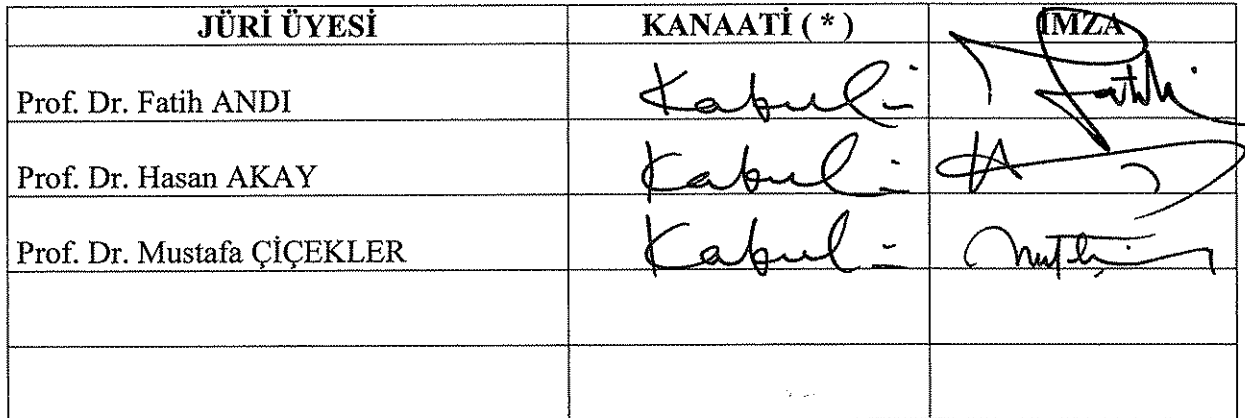 JÜRİ ÜYESİ KANAATİ ( * ) İMZA
Prof. Dr. Fatih ANDI Kabulü
Prof. Dr. Hasan AKAY Kabulü
Prof. Dr. Mustafa ÇİÇEKLER Kabulü